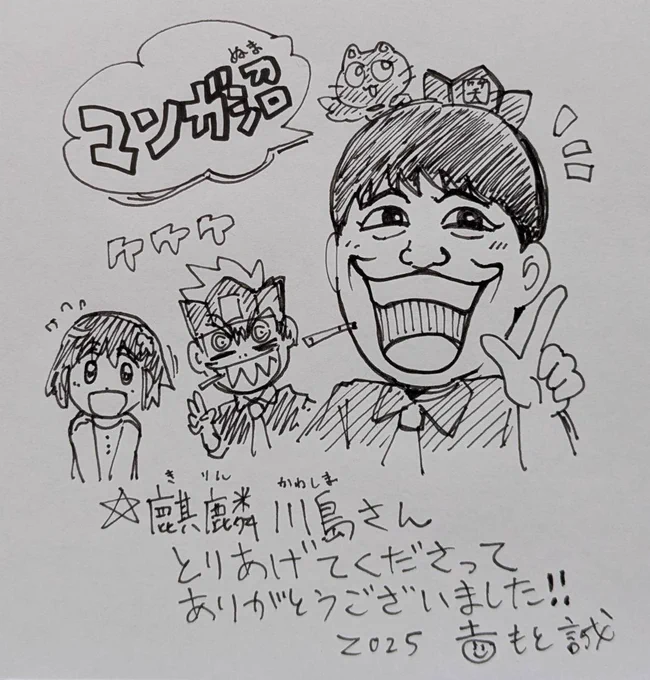 ぬま
マンガ沼
笑
ケケケ
きりん かわしま
☆麒麟 川島さん
とりあげてくださって
ありがとうございました!!
2025 もと誠